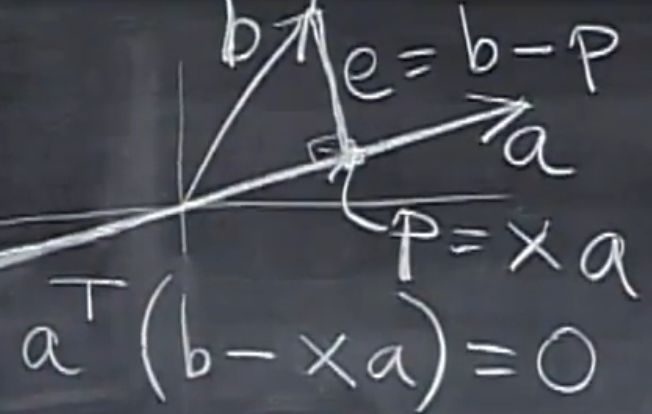 b
e = b - p
a
p = x a
aᵀ (b - xa) = 0